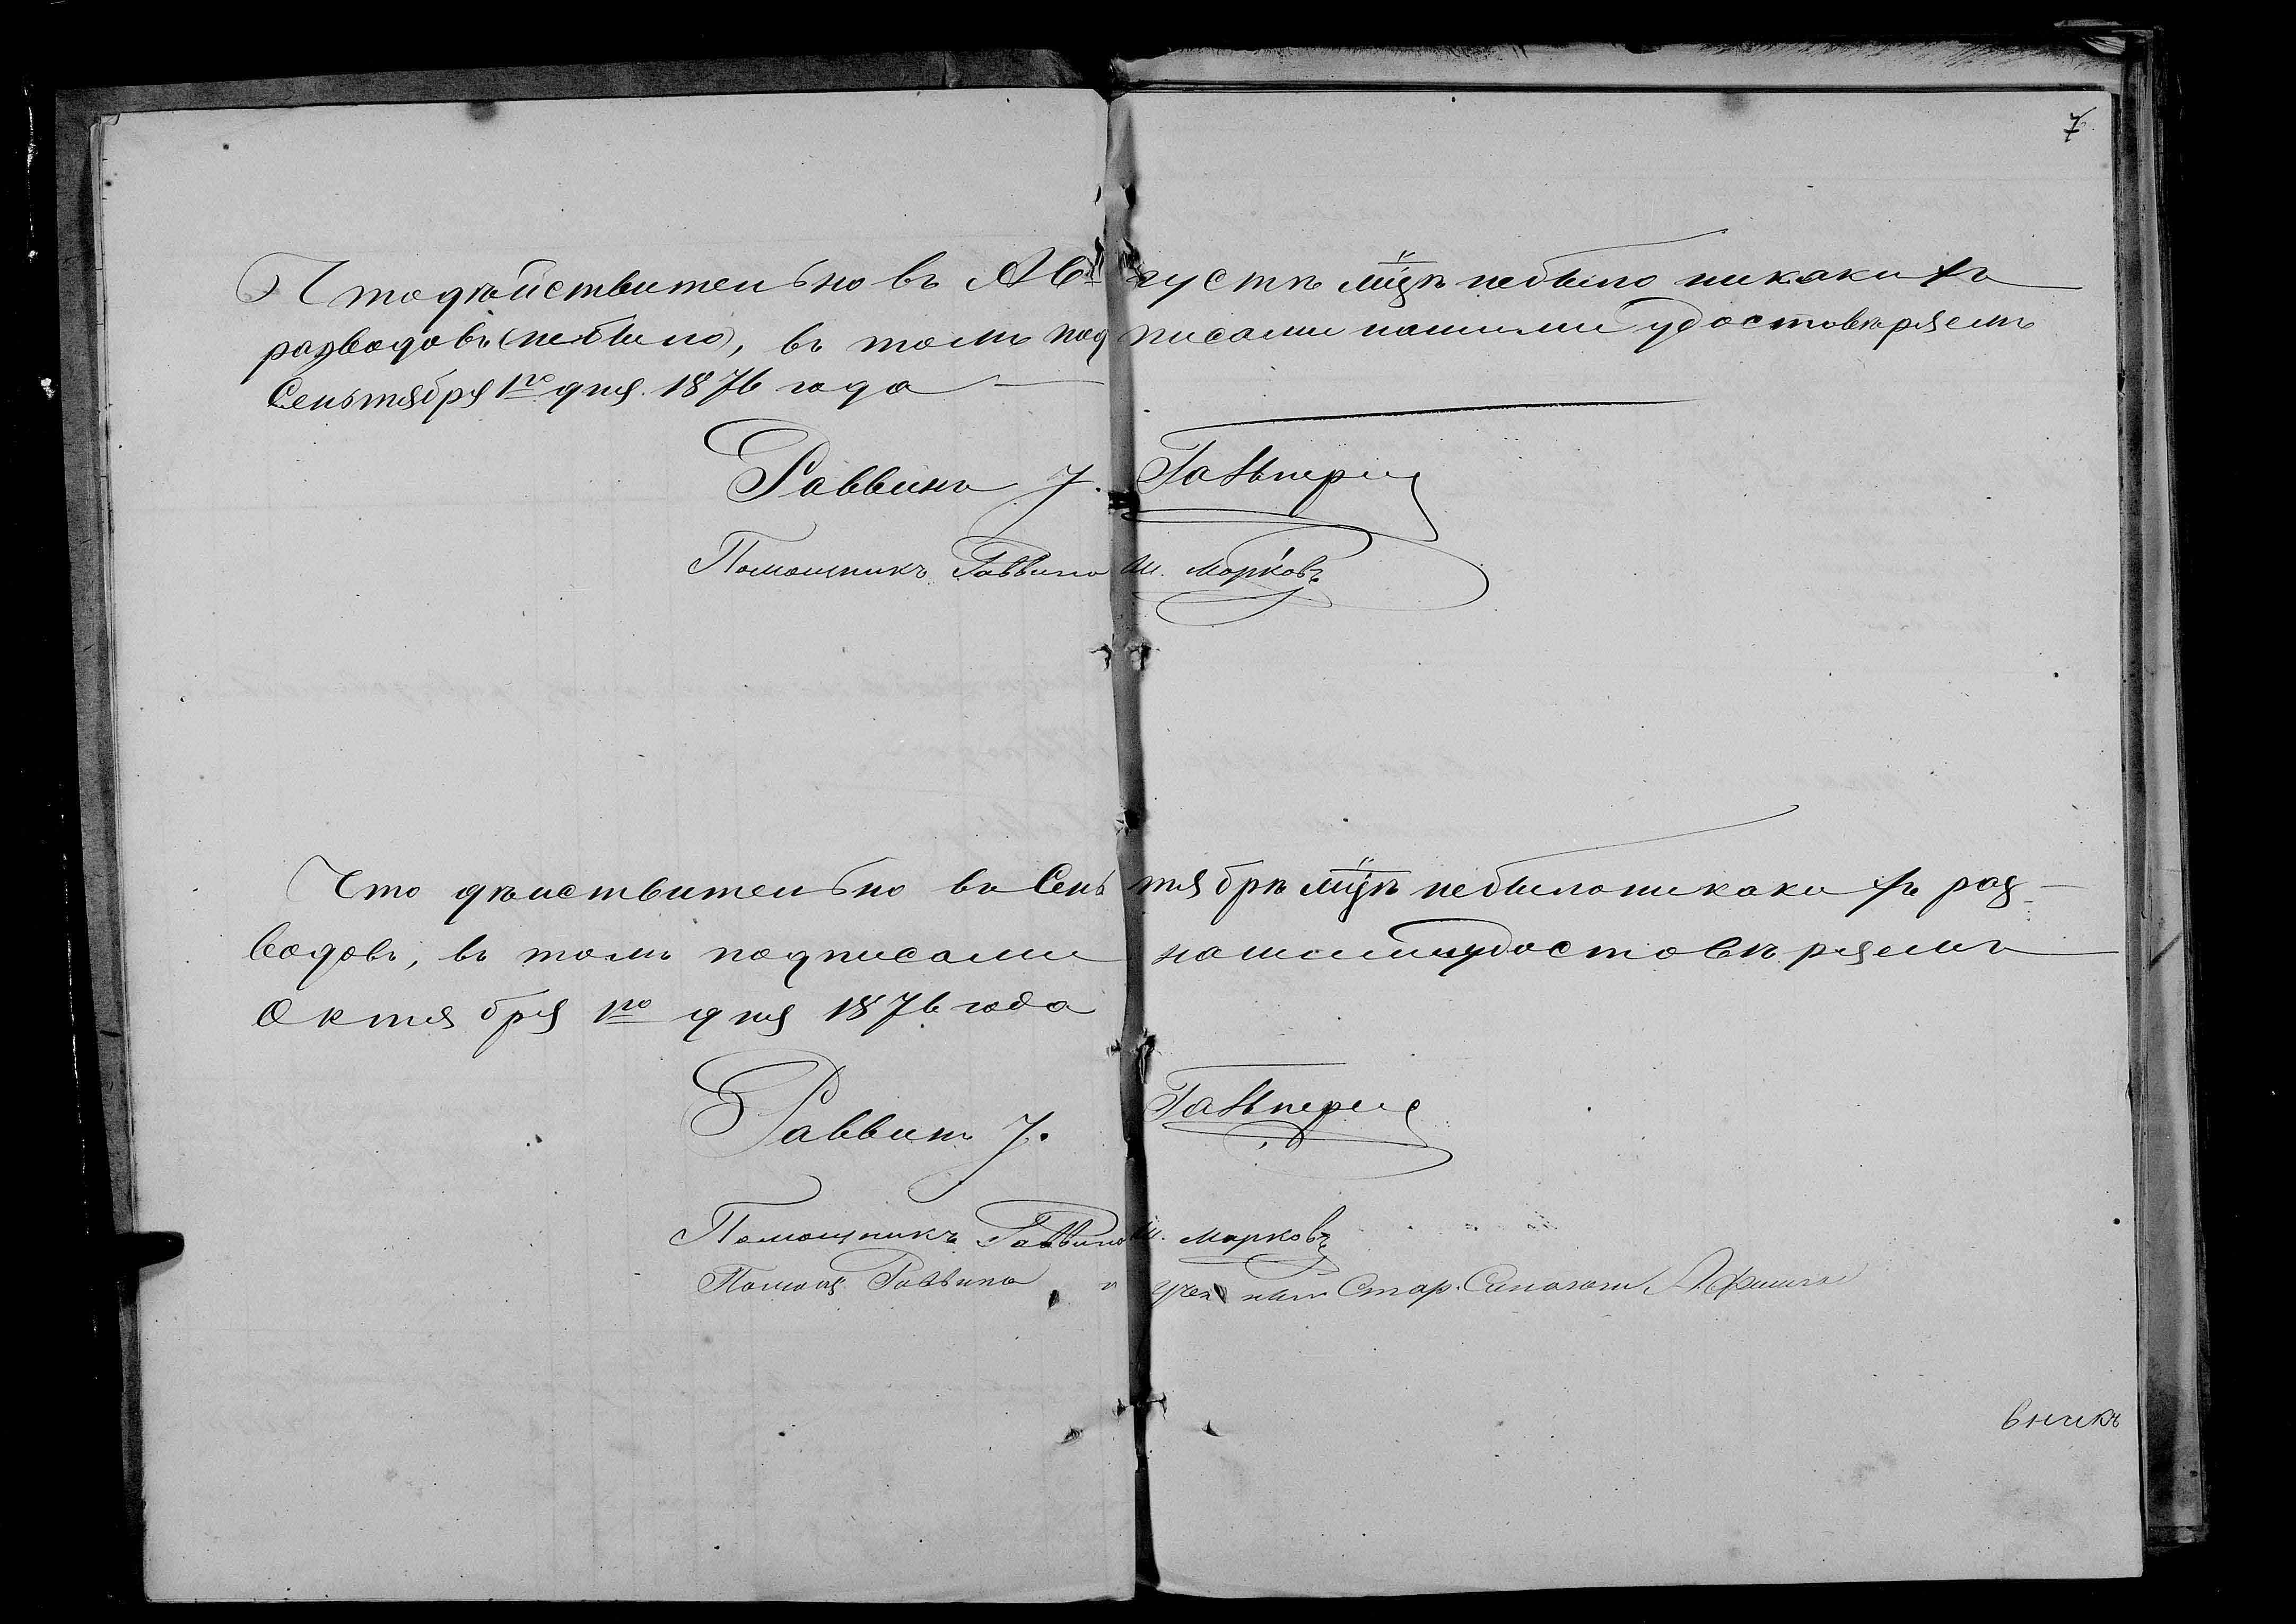 7
Что дѣйствительно въ Августѣ мцѣ небыло никакихъ
разводовъ (небыло), въ томъ подписами нашими удостовѣряемъ
Сеньтября 1го дня 1876 года
Раввинъ І. Гальперин
Помощникъ Раввина Ш. Марковъ
Что дѣиствительно въ Сеньтябрѣ мцѣ небыло никакихъ раз-
водовъ, въ томъ подписами нашими удостовѣряемъ
Октября 1го дня 1876 года
Раввинъ І. Гальперин
Помощникъ Раввина Ш. Марковъ
Помощ Раввина и Стар. Синагоги
вникъ